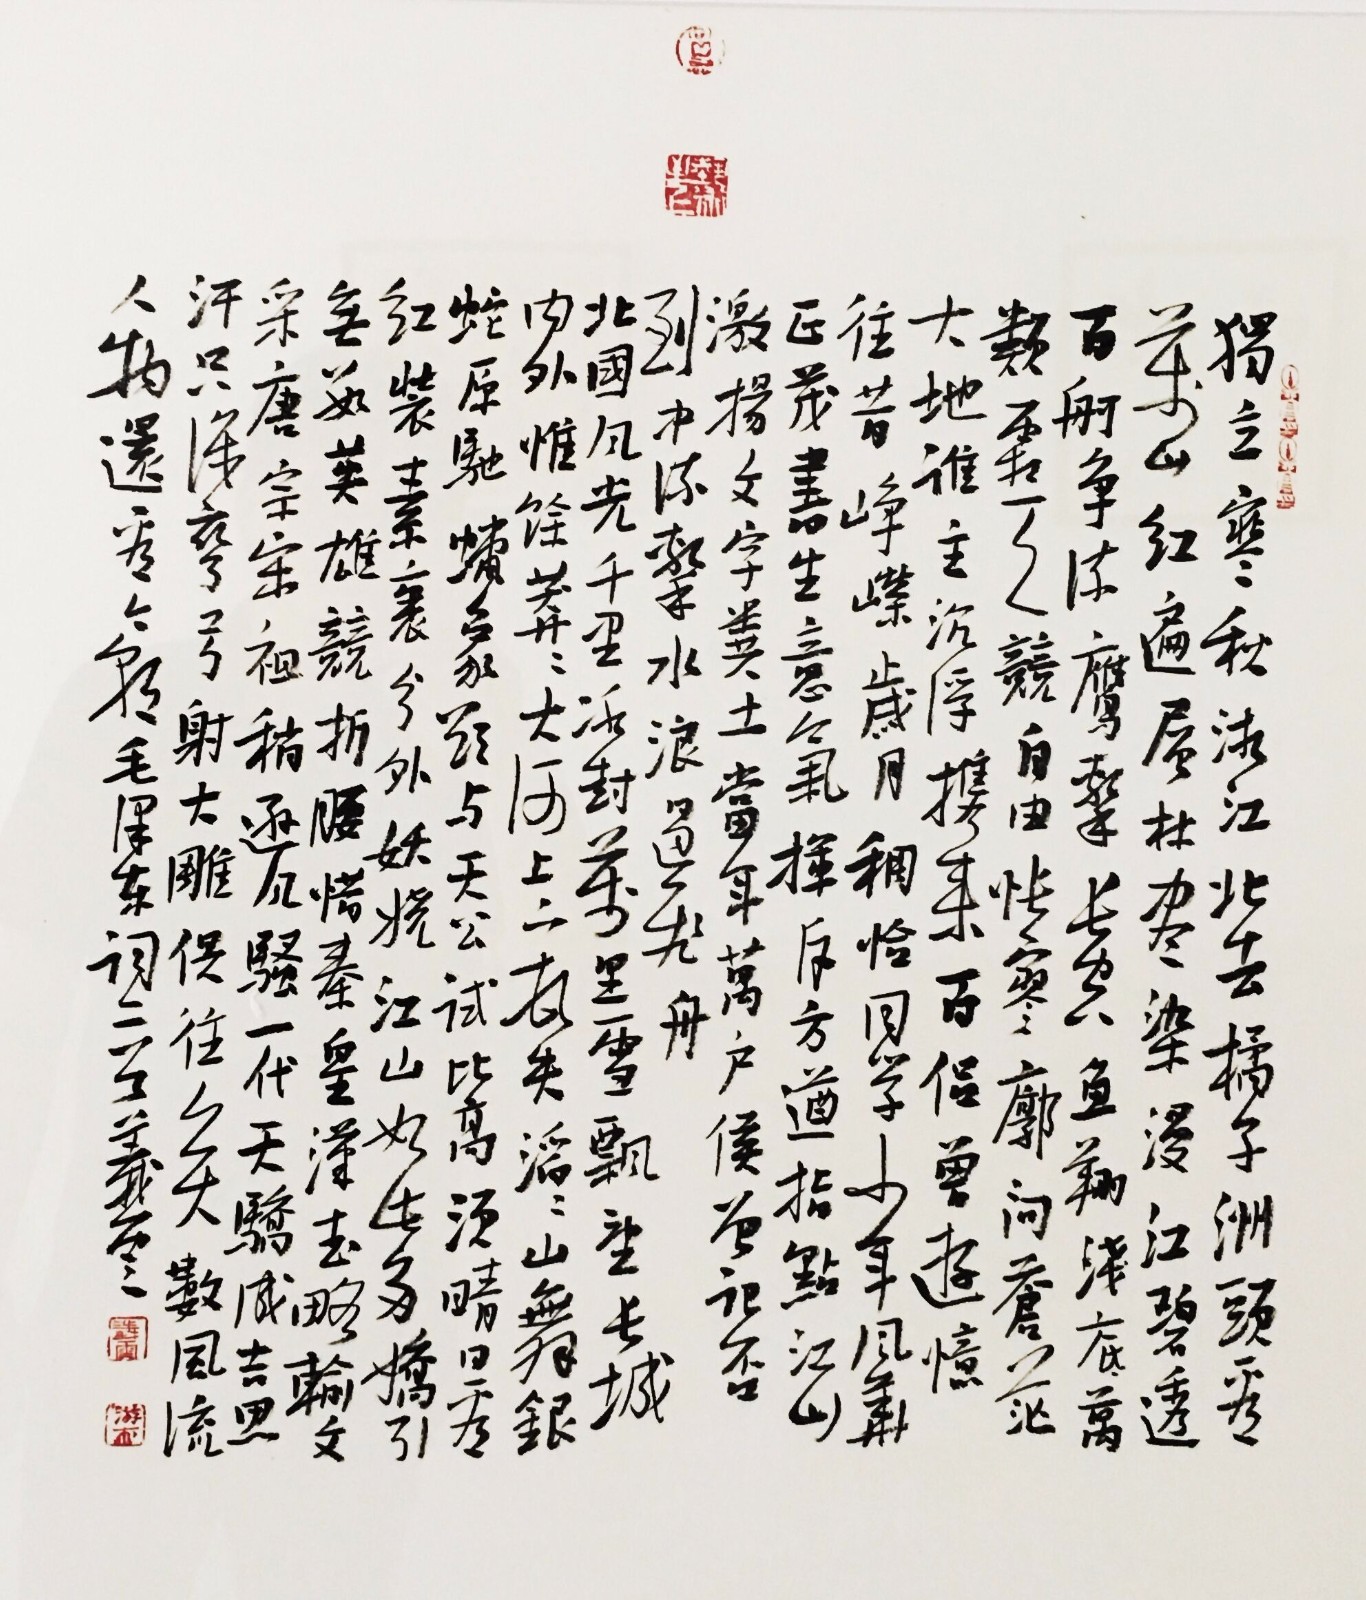 獨立寒秋湘江北去橘子洲頭看
萬山紅遍層林盡染漫江碧透
百舸争流鷹擊長空魚翔淺底萬
類霜天競自由悵寥廓问蒼茫
大地谁主沉浮攜来百侣曾遊憶
往昔峥嶸歲月稠恰同学少年风華
正茂書生意氣揮斥方遒指點江山
激揚文字糞土當年萬户侯曾记否
到中流擊水浪遏飛舟
北國风光千里冰封萬里雪飄望长城
内外惟餘莽々大河上下頓失滔々山舞銀
蛇原馳蠟象欲与天公试比高须晴日看
红裝素裹分外妖娆江山如此多嬌引
無數英雄競折腰惜秦皇漢武略輸文
采唐宗宋祖稍遜风騷一代天驕成吉思
汗只識彎弓射大雕俱往矣數風流
人物還看今朝毛澤东词二首